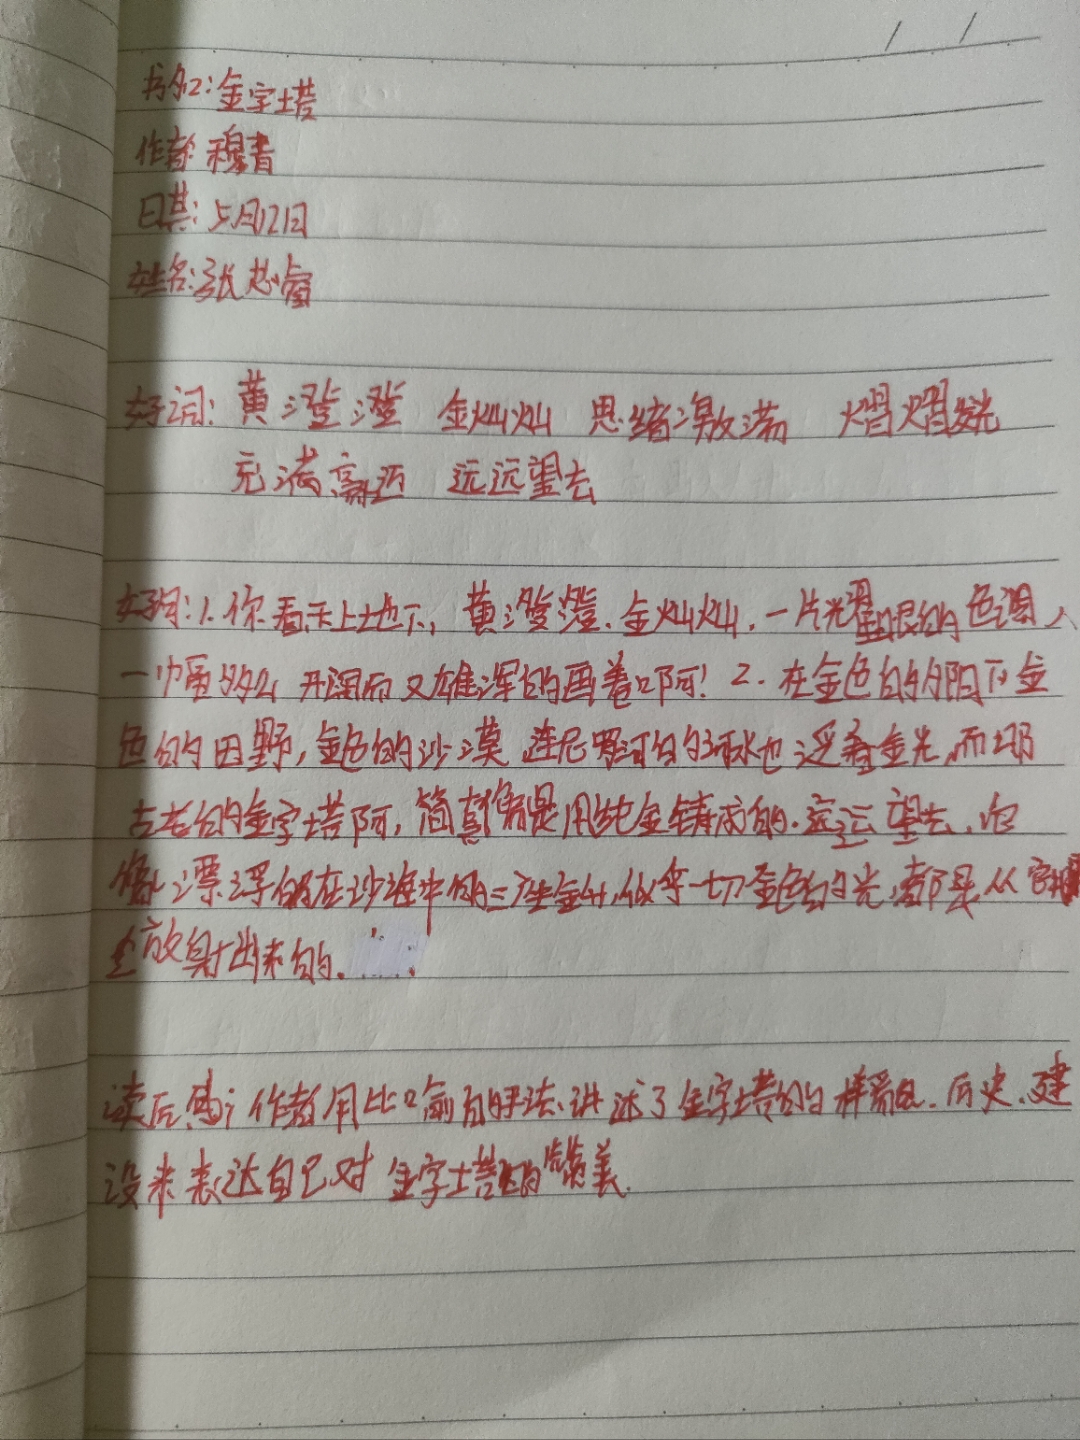 书名:金字塔
作者:穆青
日其:5月12日
姓名:张
好词:黄澄澄 金灿灿 思绪激荡 熠熠发光
充满 远远望去
好句:1.你看天上地下,黄澄澄、金灿灿,一片光耀眼的色调,
一幅多么开阔而又雄浑的画卷啊!2.在金色的阳下金
色的田野,金色的沙漠,连尼罗河的河水也泛着金光,而那
古老的金字塔阿,简直像是用纯金铸成的.远远望去,它
像漂浮的在沙海中的三座金山,似乎一切金色的光,都是从它
放射出来的.
读后感:作者用比喻的手法,讲述了金字塔的样貌.历史.建
设来表达自己对金字塔的赞美.